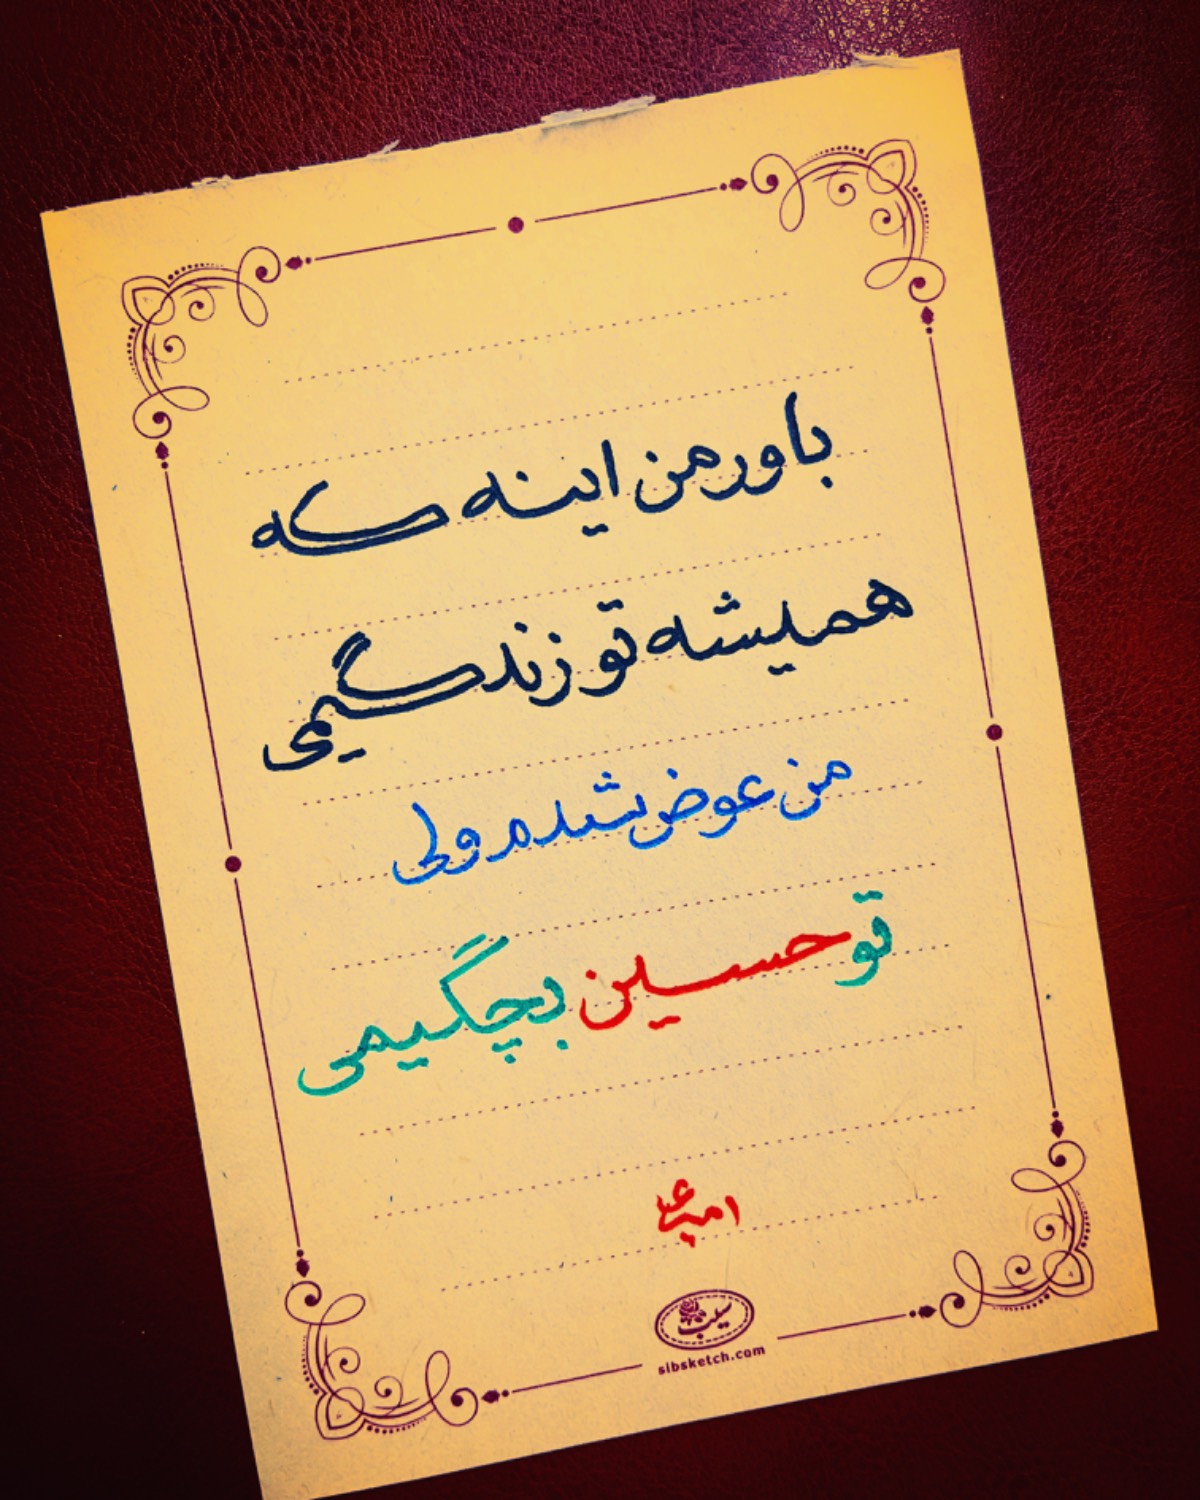 باور من اینه که
همیشه تو زندگیمی
من عوض شدم ولی
تو حسین بچگیمی
سیب
sibsketch.com